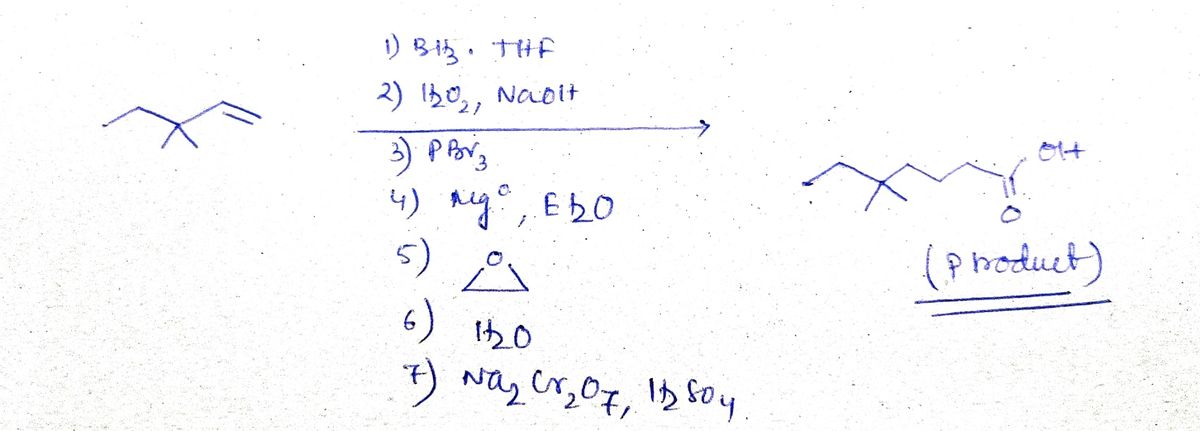 1) BH3 . THF
2) H2O2, NaOH
3) PBr3
4) Mg°, Et2O
5) O
6) H2O
7) Na2Cr2O7, H2SO4
OH
O
(Product)